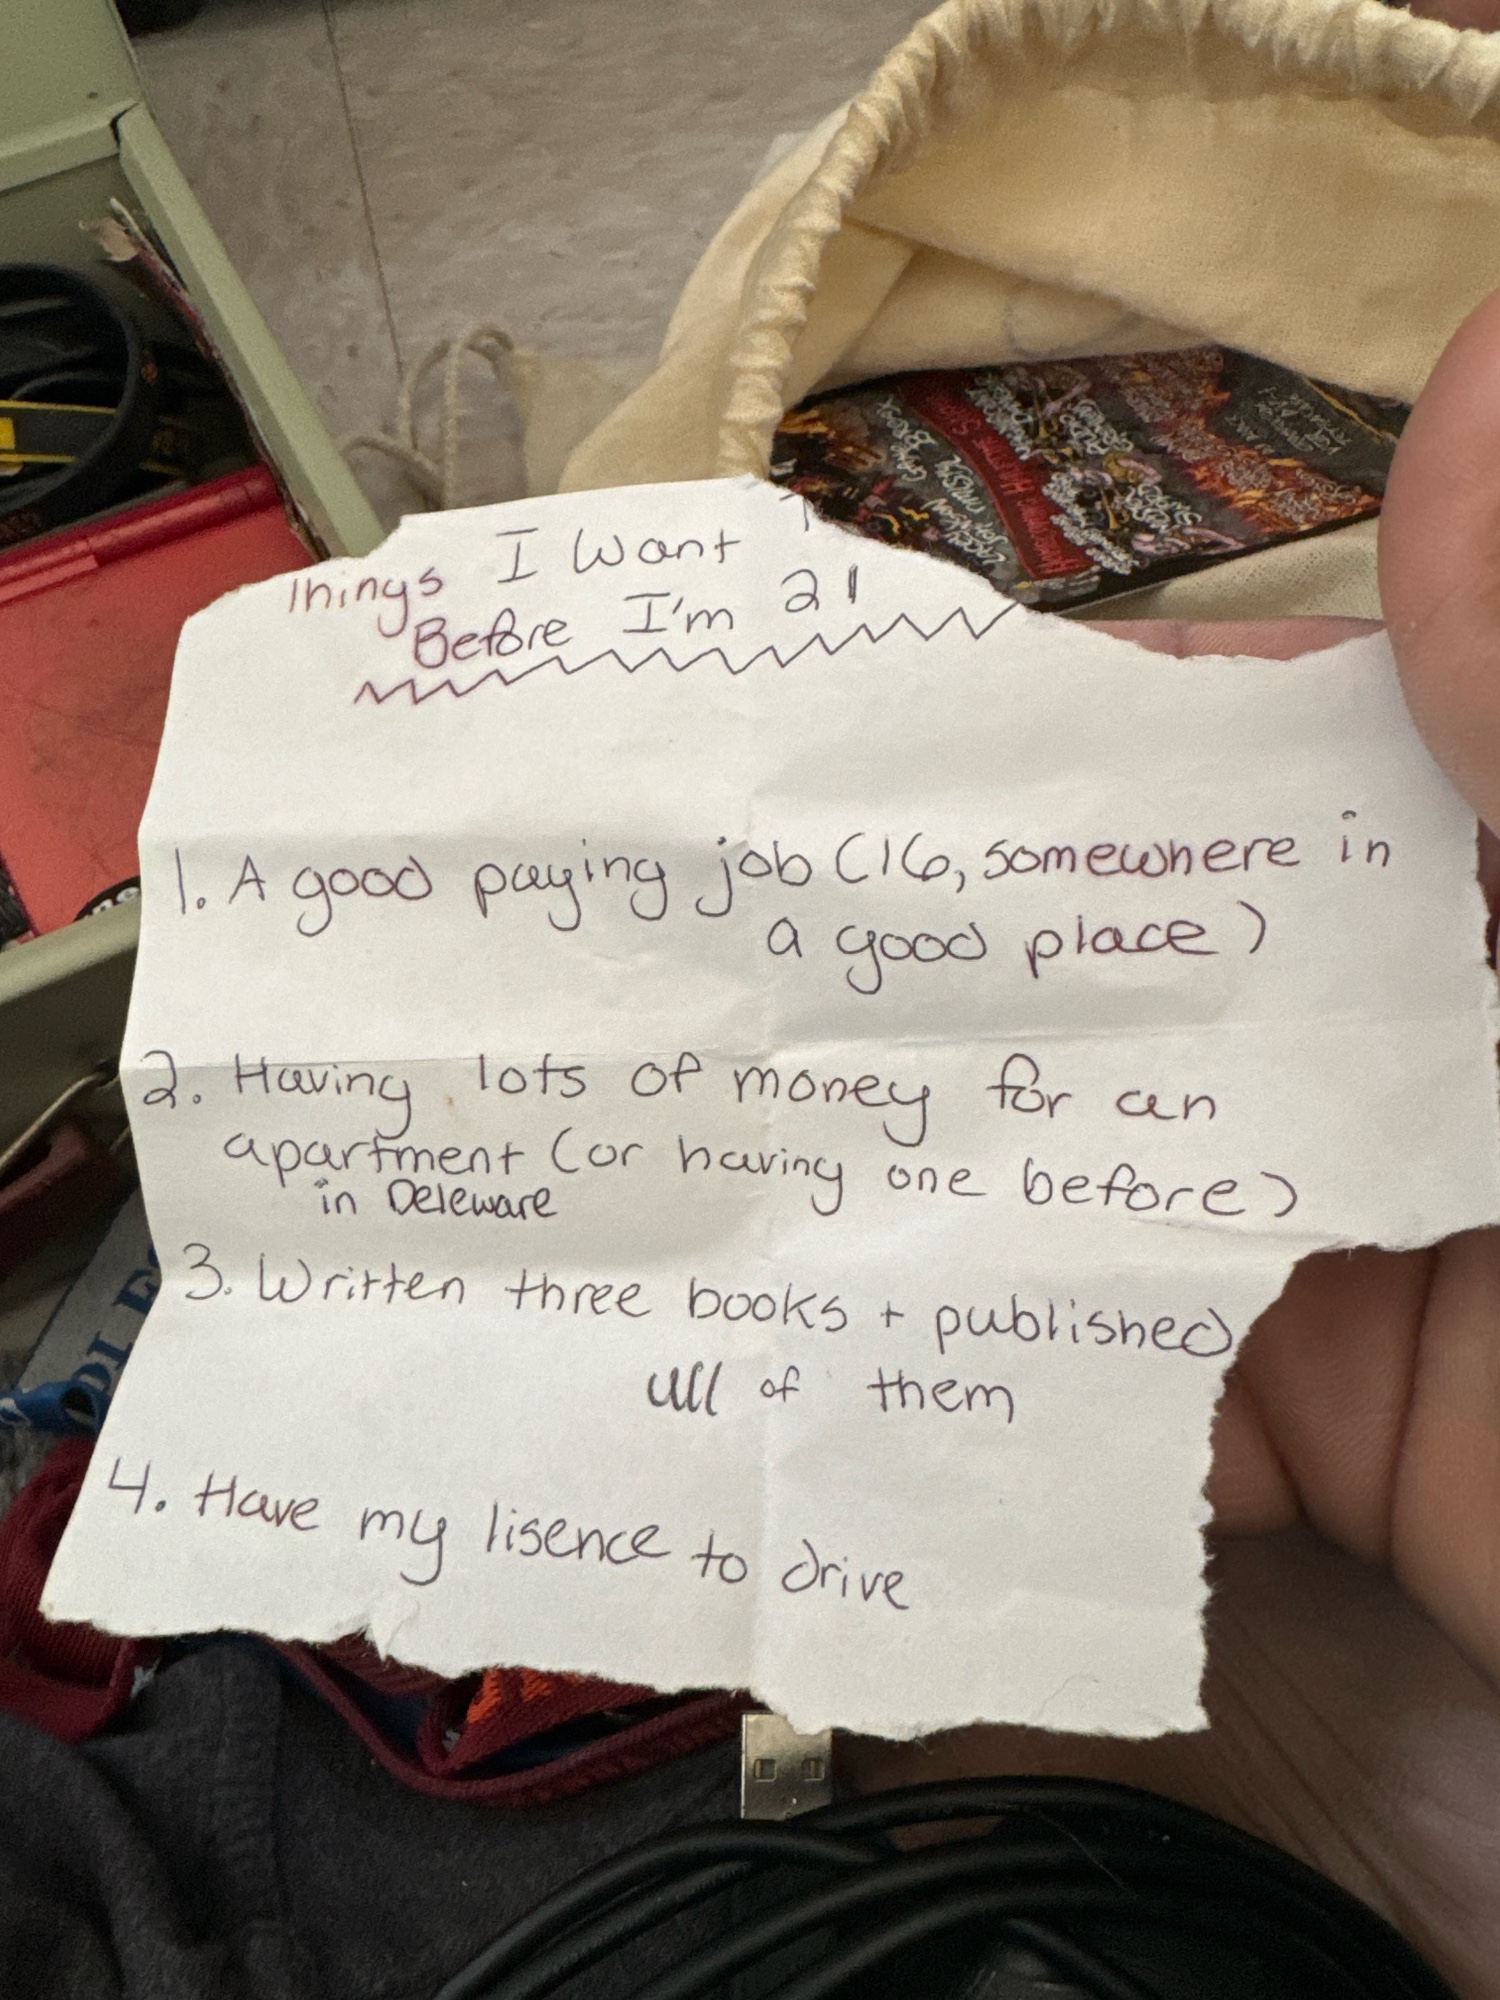 Things I Want
Before I'm 21
1. A good paying job (16, somewhere in
a good place)
2. Having lots of money for an
apartment (or having one before)
in Deleware
3. Written three books + published
all of them
4. Have my lisence to drive